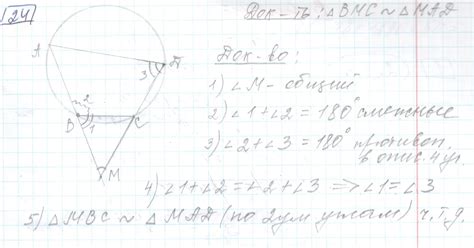 24
Док-ть: △BMC ~ △MAD
A
D
3
2
B
1
C
M
Док-во:
1) ∠M - общий
2) ∠1+∠2 = 180° смежные
3) ∠2+∠3 = 180° противоп.
в опис. 4 уг.
4) ∠1+∠2 = ∠2+∠3 => ∠1=∠3
5) △MBC ~ △MAD (по 2ум углам) ч.т.д.